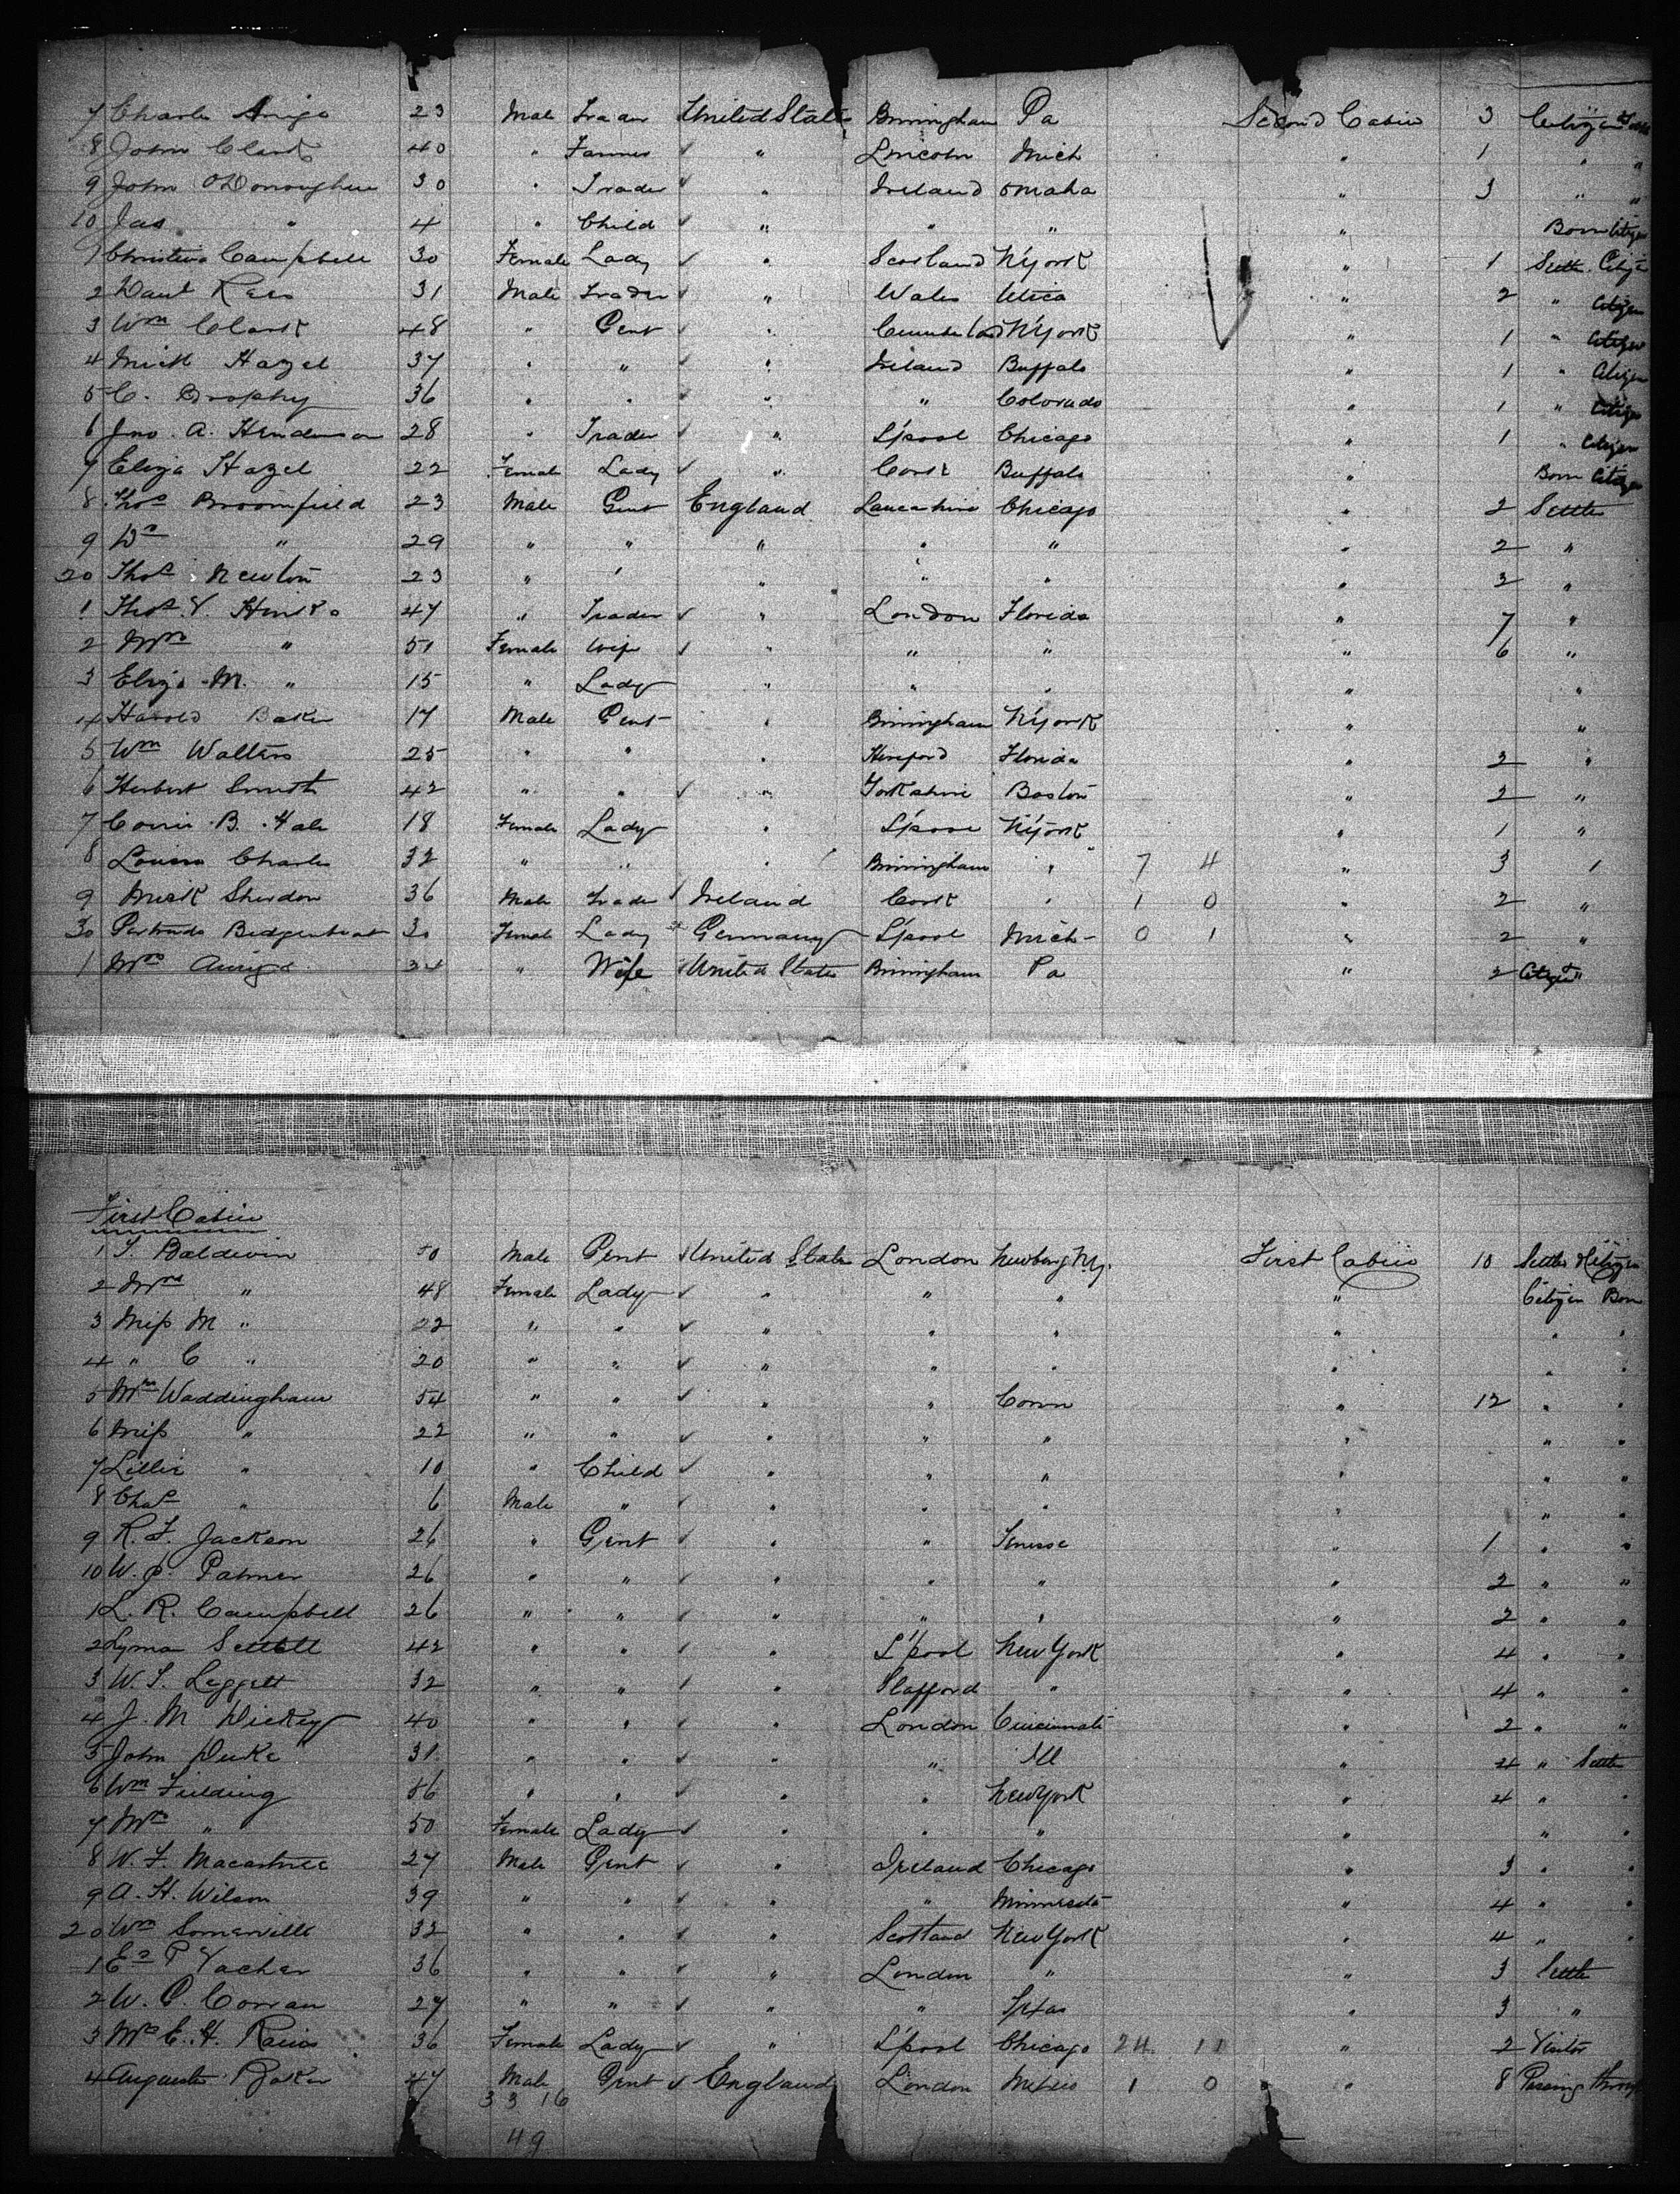 7 Charles Amigo 23 Male Trader United States Birmingham Pa Second Cabin 3 Citizen
8 John Clark 40 " Farmer " Lincoln Mich " 1 " "
9 John O'Donoghue 30 " Trader " Ireland Omaha " 3 " "
10 Jas " 4 " Child " " " " Born Citizen
1 Christina Campbell 30 Female Lady " Scotland N'York " 1 Settler Citizen
2 Danl Rees 31 Male Trader " Wales Utica " 2 " Citizen
3 Wm Clark 48 " Gent " Cumberland N'York " 1 " Citizen
4 Mich Hazel 37 " " " Ireland Buffalo " 1 " Citizen
5 C. Brophy 36 " " " " Colorado " 1 " Citizen
6 Jno. A. Henderson 28 " Trader " L'pool Chicago " 1 " Citizen
7 Eliza Hazel 22 Female Lady " Cork Buffalo " Born Citizen
8 Thos Broomfield 23 Male Gent England Lancashire Chicago " 2 Settler
9 Wm " 29 " " " " " " 2 "
20 Thos Newton 23 " " " " " " 2 "
1 Thos V. Hinks 47 " Trader " London Florida " 7 "
2 Mrs " 51 Female Wife " " " " 6 "
3 Eliza M. " 15 " Lady " " " " "
4 Harold Baker 17 Male Gent " Birmingham N'York " "
5 Wm Walters 25 " " " Hereford Florida " 2 "
6 Herbert Smith 42 " " " Yorkshire Boston " 2 "
7 Corrie B. Hale 18 Female Lady " L'pool N'York " 1 "
8 Louisa Charles 32 " " " Birmingham " 7 4 " 3 "
9 Mick Sheridon 36 Male Trader Ireland Cork " 1 0 " 2 "
30 Gertrude 30 Female Lady Germany L'pool Mich 0 1 " 2 "
1 Mrs Amigo 34 " Wife United States Birmingham Pa " 2 Citizen "
First Cabin
1 T. Baldwin 50 Male Gent United States London Newburg N.Y. First Cabin 10 Settler Citizen
2 Mrs " 48 Female Lady " " " " Citizen Born
3 Miss M " 22 " " " " " " " "
4 " C " 20 " " " " " " " "
5 Mrs Waddingham 54 " " " " Conn " 12 " "
6 Miss " 22 " " " " " " " "
7 Lillie " 10 " Child " " " " " "
8 Chas " 6 Male " " " " " " "
9 R. F. Jackson 26 " Gent " " " 1 " "
10 W. P. Palmer 26 " " " " " " 2 " "
1 L. R. Campbell 26 " " " " " " 2 " "
2 Lyman 42 " " " L'pool New York " 4 " "
3 W. T. Leggett 32 " " " Stafford " " 4 " "
4 J. M Dickey 40 " " " London Cincinnati " 2 " "
5 John Duke 31 " " " " Ill " 4 " Settler
6 Wm Fielding 56 " " " " New York " 4 " "
7 Mrs " 50 Female Lady " " " " " "
8 W. F. Macartney 27 Male Gent " Ireland Chicago " 3 " "
9 A. H. Wilson 39 " " " " Minnesota " 4 " "
20 Wm Somerville 32 " " " Scotland New York " 4 " "
1 Ed P Vacher 36 " " " London " " 3 Settler
2 W. P. Corran 27 " " " " Texas " 3 "
3 Mrs E. H. 36 Female Lady " L'pool Chicago 24 11 " 2 Visitor
4 Augustus Baker 47 Male Gent England London Mexico 1 0 " 8 Passing through
33 16
49